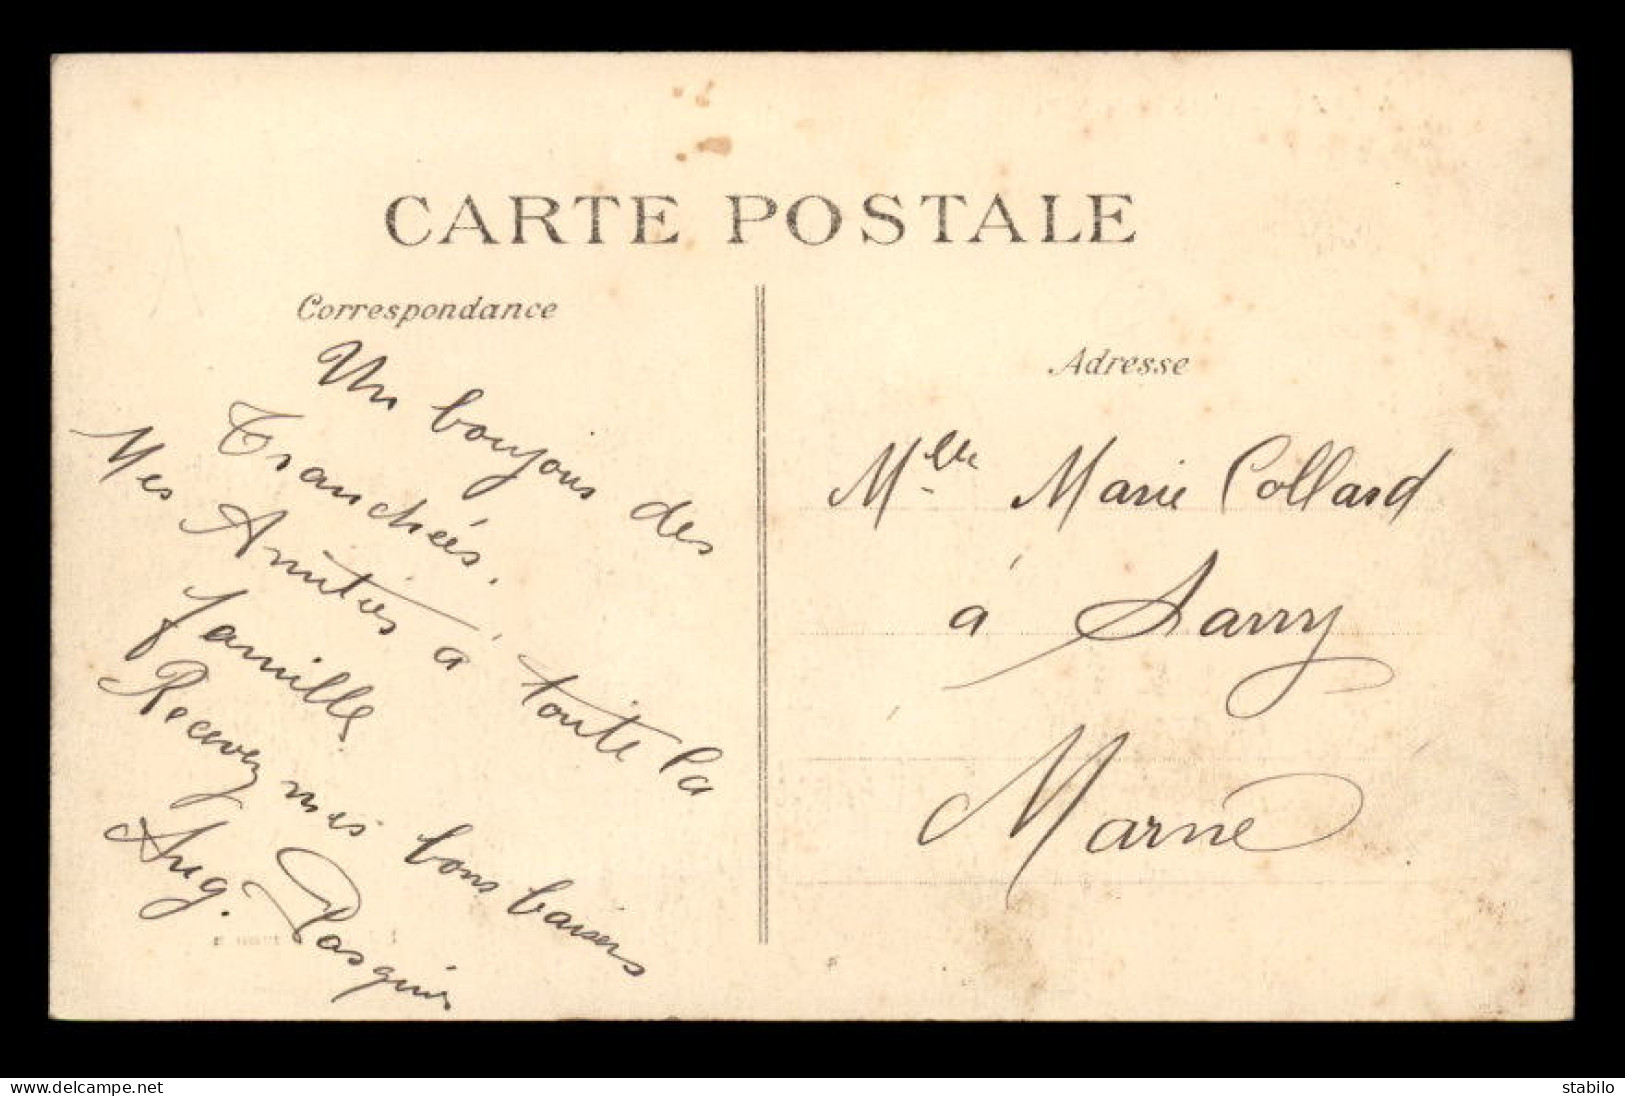 CARTE POSTALE
Correspondance
Un bonjour des
Tranchées.
Mes Amitiés à toute la
famille
Recevez mes bons baisers
Aug. Pasquin
Adresse
Mlle Marie Collard
à Sarry
Marne
www.delcampe.net
stabilo